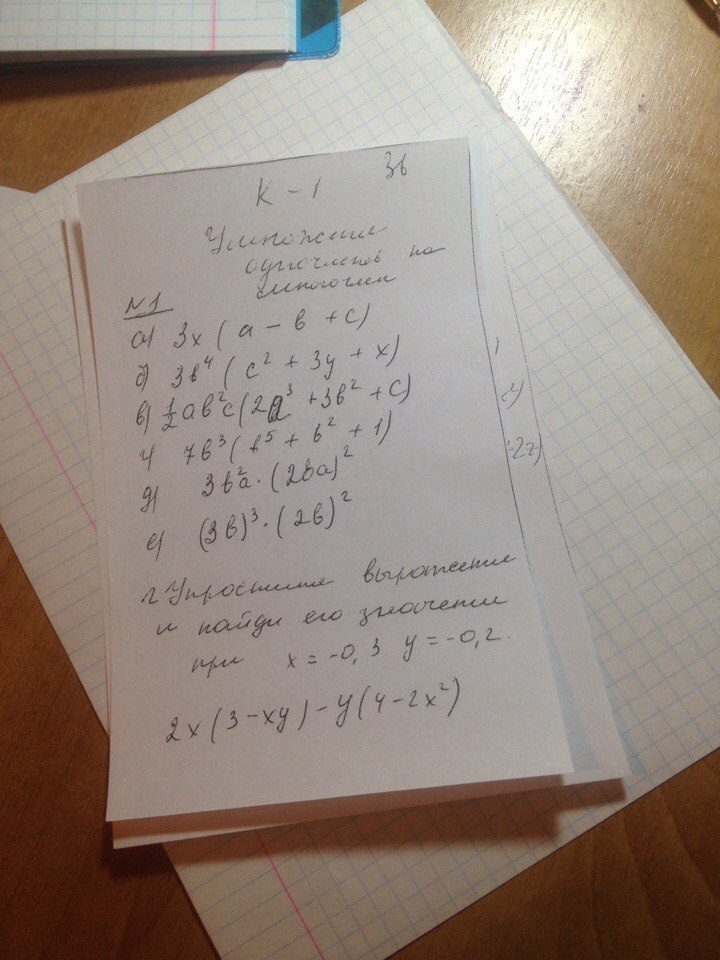 К-1 3в
Умножение
одночленов на
многочлен
№1
а) 3x(a - в + c)
б) 3в⁴(c² + 3y + x)
в) ½aв²c(2a³ + 3в² + c)
г) 7в³(в⁵ + в² + 1)
д) 3в²a·(2вa)²
е) (3в)³·(2в)²
2. Упростите выражение
и найди его значении
при x = -0,3 y = -0,2.
2x(3-xy)-y(4-2x²)
-2z)